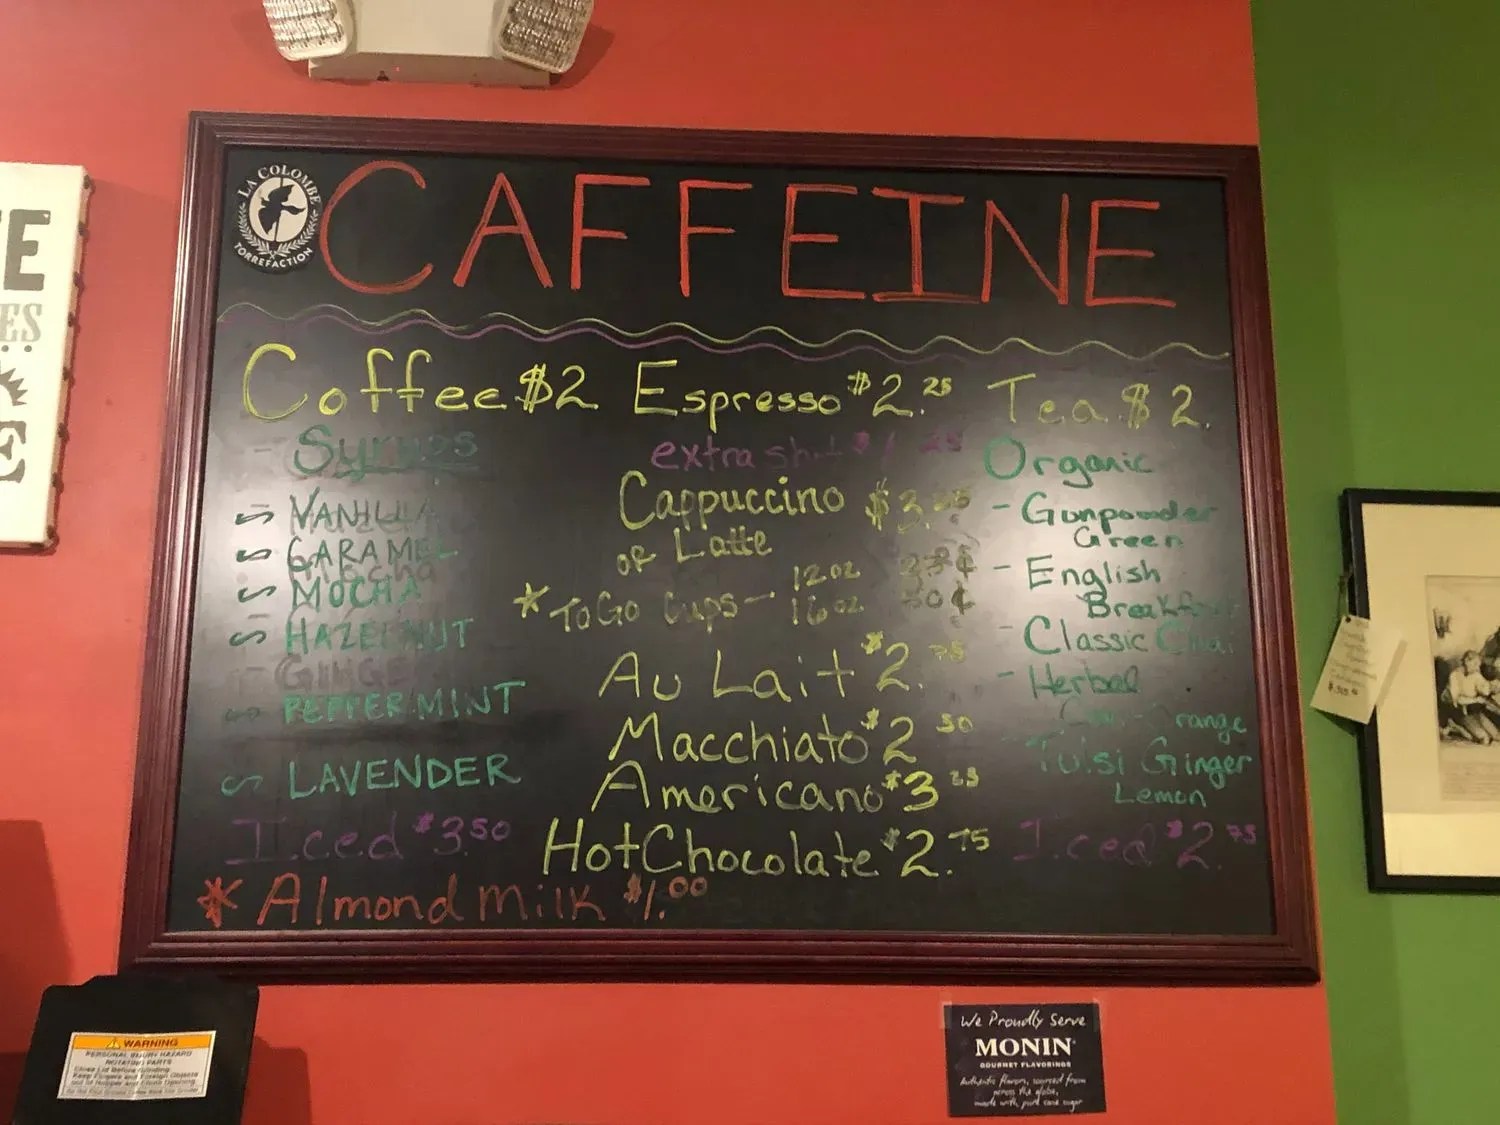 LA COLOMBE
TORREFACTION
CAFFEINE
Coffee $2
- Syrups
VANILLA
CARAMEL
MOCHA
HAZELNUT
PEPPERMINT
LAVENDER
Iced $3.50
* Almond Milk $1.00
Espresso $2.25
extra shot $1.25
Cappuccino $3.
or Latte
* To Go Cups - 12oz
16oz 50¢
Au Lait $2.75
Macchiato $2.50
Americano $3.25
Hot Chocolate $2.75
Tea $2.
Organic
- Gunpowder
Green
- English
Breakfast
- Classic Chai
- Herbal
Orange
Tulsi Ginger
Lemon
Iced $2.75
WARNING
PERSONAL INJURY HAZARD
ROTATING PARTS
Close Lid Before Grinding
Keep Fingers and Foreign Objects
out of Hopper and Chute Opening
We Proudly Serve
MONIN
GOURMET FLAVORINGS
Authentic flavors, sourced from
across the globe,
made with pure cane sugar